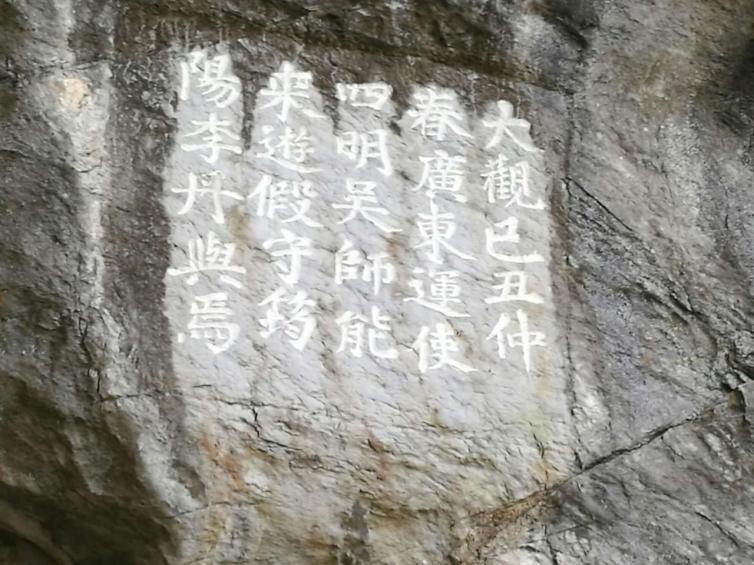 大觀己丑仲
春廣東運使
四明吳師能
来遊假守筠
陽李丹與焉